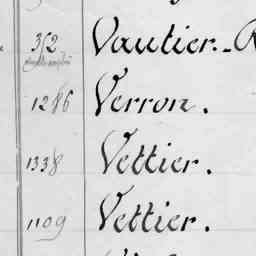 352 Vautier. - R
1286 Verron.
1338 Vettier.
1109 Vettier.